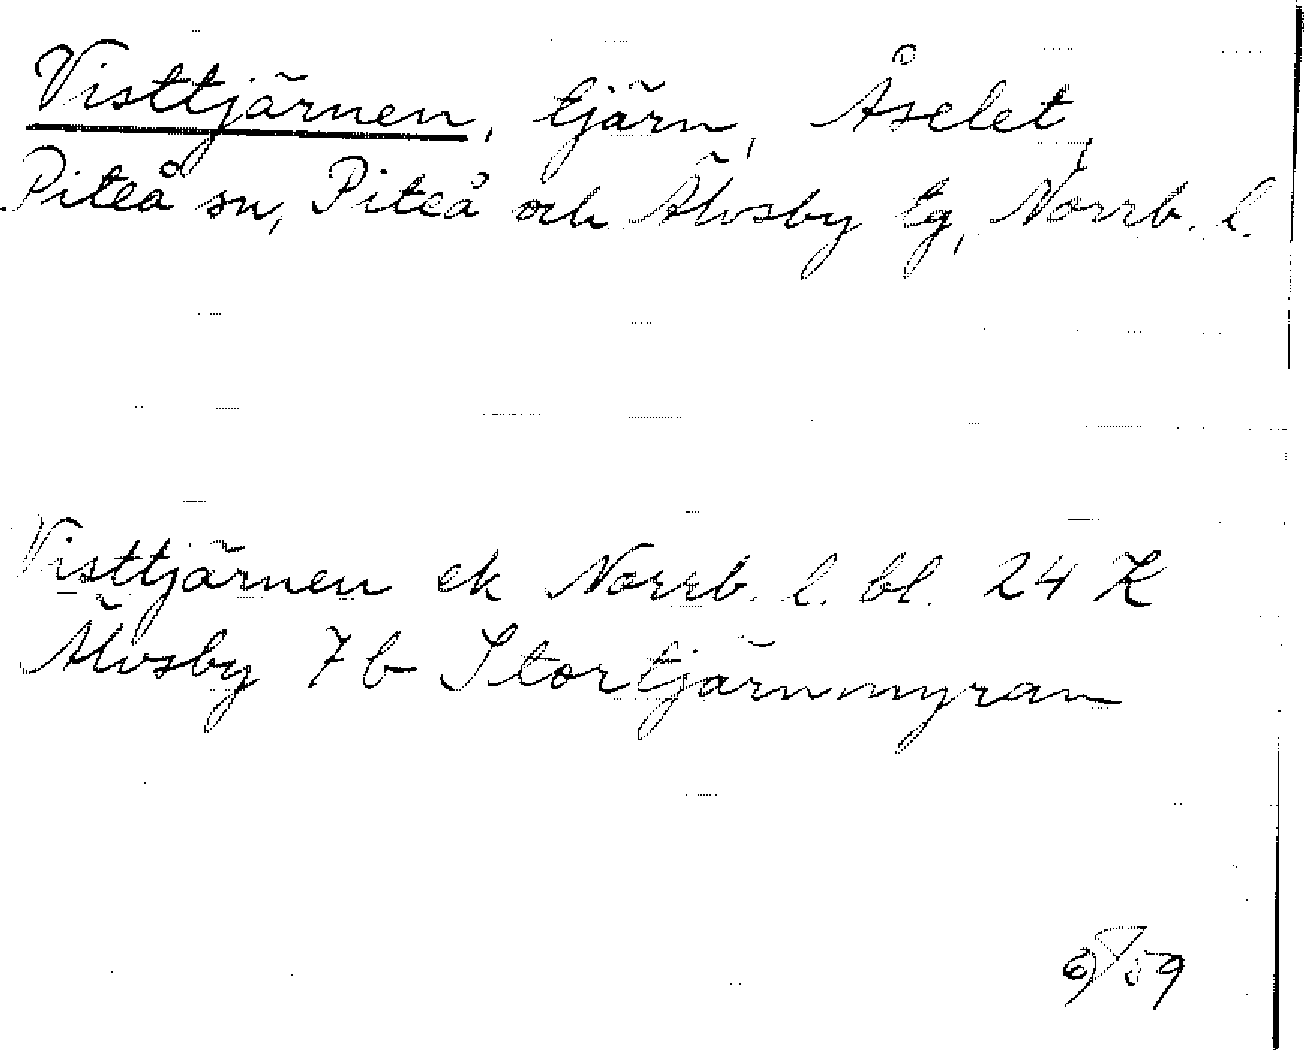 Visttjärnen, tjärn, Åselet,
Piteå sn, Piteå och Älvsby tg, Norrb. l.
Visttjärnen ek Norrb. l. bl. 24 K
Älvsby 7 b Stortjärnmyran